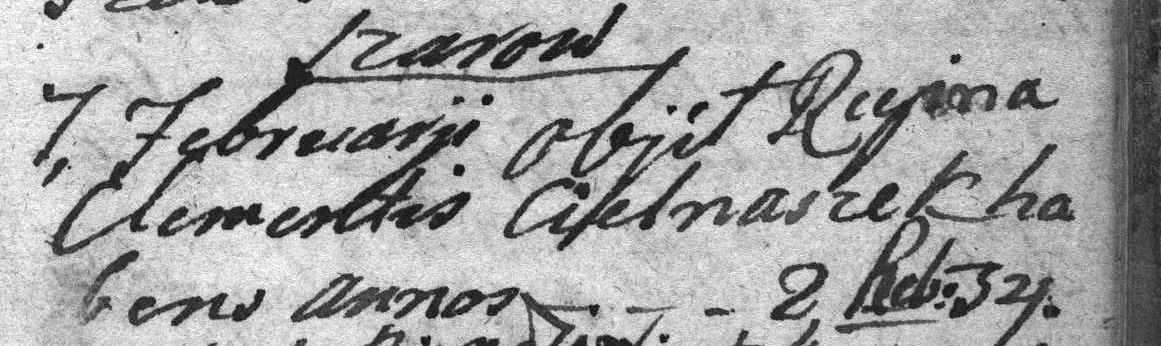 Żarow
7, Februarji objit Regina
Clementis Cielnaszek ha
bens annos - - - 2, Heb: 34.